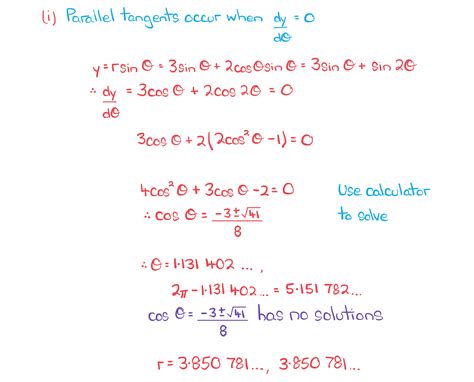 (i) Parallel tangents occur when dy/dθ = 0
y = r sin θ = 3sin θ + 2cosθsin θ = 3sin θ + sin 2θ
∴ dy/dθ = 3cos θ + 2cos 2θ = 0
3cos θ + 2(2cos²θ -1) = 0
4cos²θ + 3cos θ -2 = 0 Use calculator
∴ cos θ = -3±√41/8 to solve
∴ θ = 1·131 402 ... ,
2π - 1·131 402... = 5·151 782...
cos θ = -3±√41/8 has no solutions
r = 3·850 781..., 3·850 781...